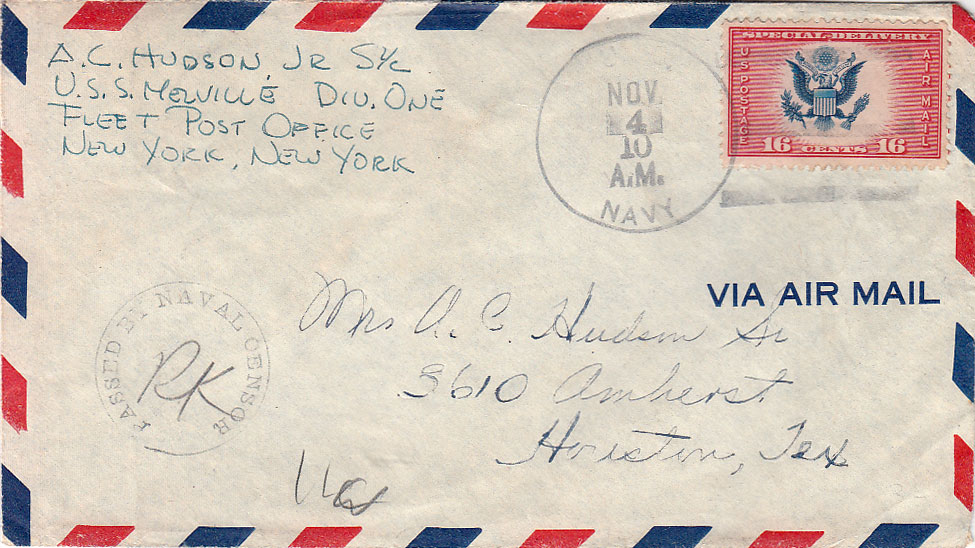 A.C. HUDSON, JR S1/c
U.S.S. MELVILLE DIV. ONE
FLEET POST OFFICE
NEW YORK, NEW YORK
NOV.
4
10
A.M.
NAVY
SPECIAL DELIVERY
U S POSTAGE
AIR MAIL
16 CENTS 16
VIA AIR MAIL
PASSED BY NAVAL CENSOR
RK
Mrs A. C. Hudson Sr
3610 Amherst
Houston, Tex